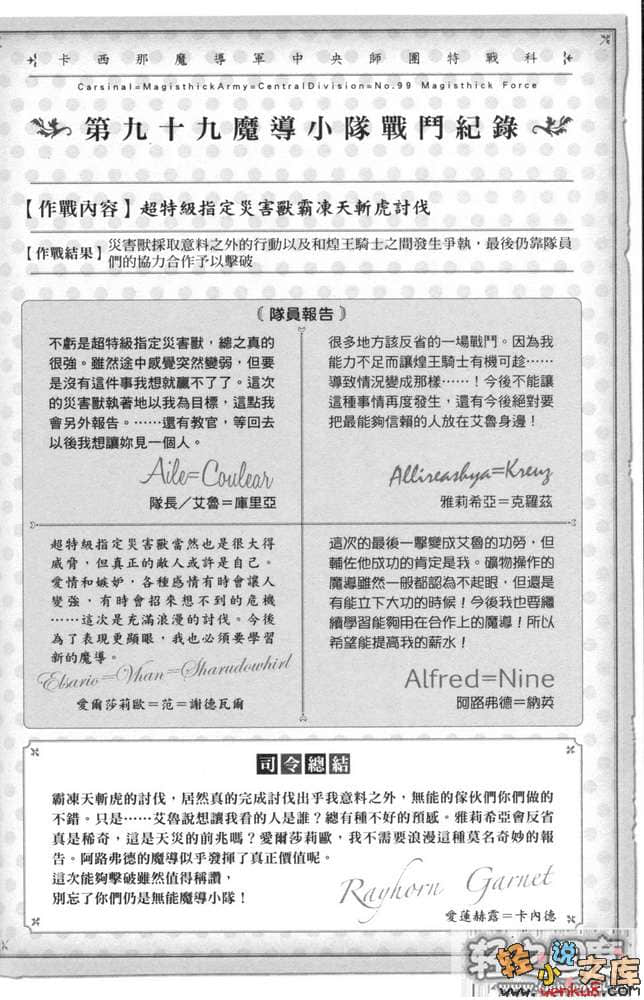 卡西那魔導軍中央師團特戰科
Carsinal=MagisthickArmy=CentralDivision=No.99 Magisthick Force
第九十九魔導小隊戰鬥紀錄
【作戰內容】超特級指定災害獸霸凍天斬虎討伐
【作戰結果】災害獸採取意料之外的行動以及和煌王騎士之間發生爭執，最後仍靠隊員
們的協力合作予以擊破
《隊員報告》
不虧是超特級指定災害獸，總之真的
很強。雖然途中感覺突然變弱，但要
是沒有這件事我想就贏不了了。這次
的災害獸執著地以我為目標，這點我
會另外報告。……還有教官，等回去
以後我想讓妳見一個人。
Aile=Coulear
隊長／艾魯＝庫里亞
很多地方該反省的一場戰鬥。因為我
能力不足而讓煌王騎士有機可趁……
導致情況變成那樣……！今後不能讓
這種事情再度發生，還有今後絕對要
把最能夠信賴的人放在艾魯身邊！
Allireashya=Kreuz
雅莉希亞＝克羅茲
超特級指定災害獸當然也是很大得
威脅，但真正的敵人或許是自己。
愛情和嫉妒，各種感情有時會讓人
變強，有時會招來想不到的危機
……這次是充滿浪漫的討伐。今後
為了表現更顯眼，我也必須要學習
新的魔導。
Elsario=Vhan=Sharudowhirl
愛爾莎莉歐＝范＝謝德瓦爾
這次的最後一擊變成艾魯的功勞，但
輔佐他成功的肯定是我。礦物操作的
魔導雖然一般都認為不起眼，但還是
有能立下大功的時候！今後我也要繼
續學習能夠用在合作上的魔導！所以
希望能提高我的薪水！
Alfred=Nine
阿路弗德＝納英
司令總結
霸凍天斬虎的討伐，居然真的完成討伐出乎我意料之外，無能的傢伙們你們做的
不錯。只是……艾魯說想讓我看的人是誰？總有種不好的預感。雅莉希亞會反省
真是稀奇，這是天災的前兆嗎？愛爾莎莉歐，我不需要浪漫這種莫名奇妙的報
告。阿路弗德的魔導似乎發揮了真正價值呢。
這次能夠擊破雖然值得稱讚，
別忘了你們仍是無能魔導小隊！
Rayhorn Garnet
愛蓮赫露＝卡內德
轻小说文库
www.wenku8.com